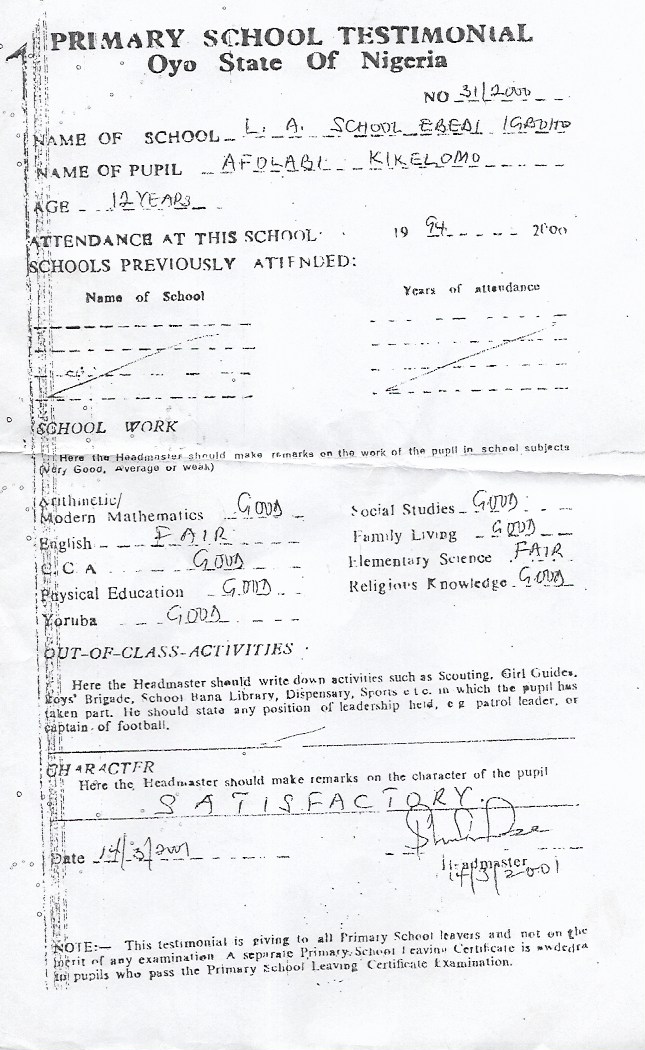 PRIMARY SCHOOL TESTIMONIAL
Oyo State Of Nigeria
NO 31/2000
NAME OF SCHOOL L. A. SCHOOL EBEDI IGBOHO
NAME OF PUPIL AFOLABI KIKELOMO
AGE 12 YEARS
ATTENDANCE AT THIS SCHOOL: 19 94 2000
SCHOOLS PREVIOUSLY ATTENDED:
Name of School Years of attendance
SCHOOL WORK
Here the Headmaster should make remarks on the work of the pupil in school subjects
(Very Good, Average or weak)
Arithmetic/
Modern Mathematics GOOD
English FAIR
C. C. A GOOD
Physical Education GOOD
Yoruba GOOD
Social Studies GOOD
Family Living GOOD
Elementary Science FAIR
Religious Knowledge GOOD
OUT-OF-CLASS-ACTIVITIES
Here the Headmaster should write down activities such as Scouting, Girl Guides,
Boys' Brigade, School Bana Library, Dispensary, Sports etc. in which the pupil has
taken part. He should state any position of leadership held, e.g patrol leader, or
captain of football.
CHARACTER
Here the Headmaster should make remarks on the character of the pupil
SATISFACTORY.
Date 14/3/2001
Headmaster
14/3/2001
NOTE:— This testimonial is giving to all Primary School leavers and not on the
merit of any examination A separate Primary School Leaving Certificate is awdedra
to pupils who pass the Primary School Leaving Certificate Examination.